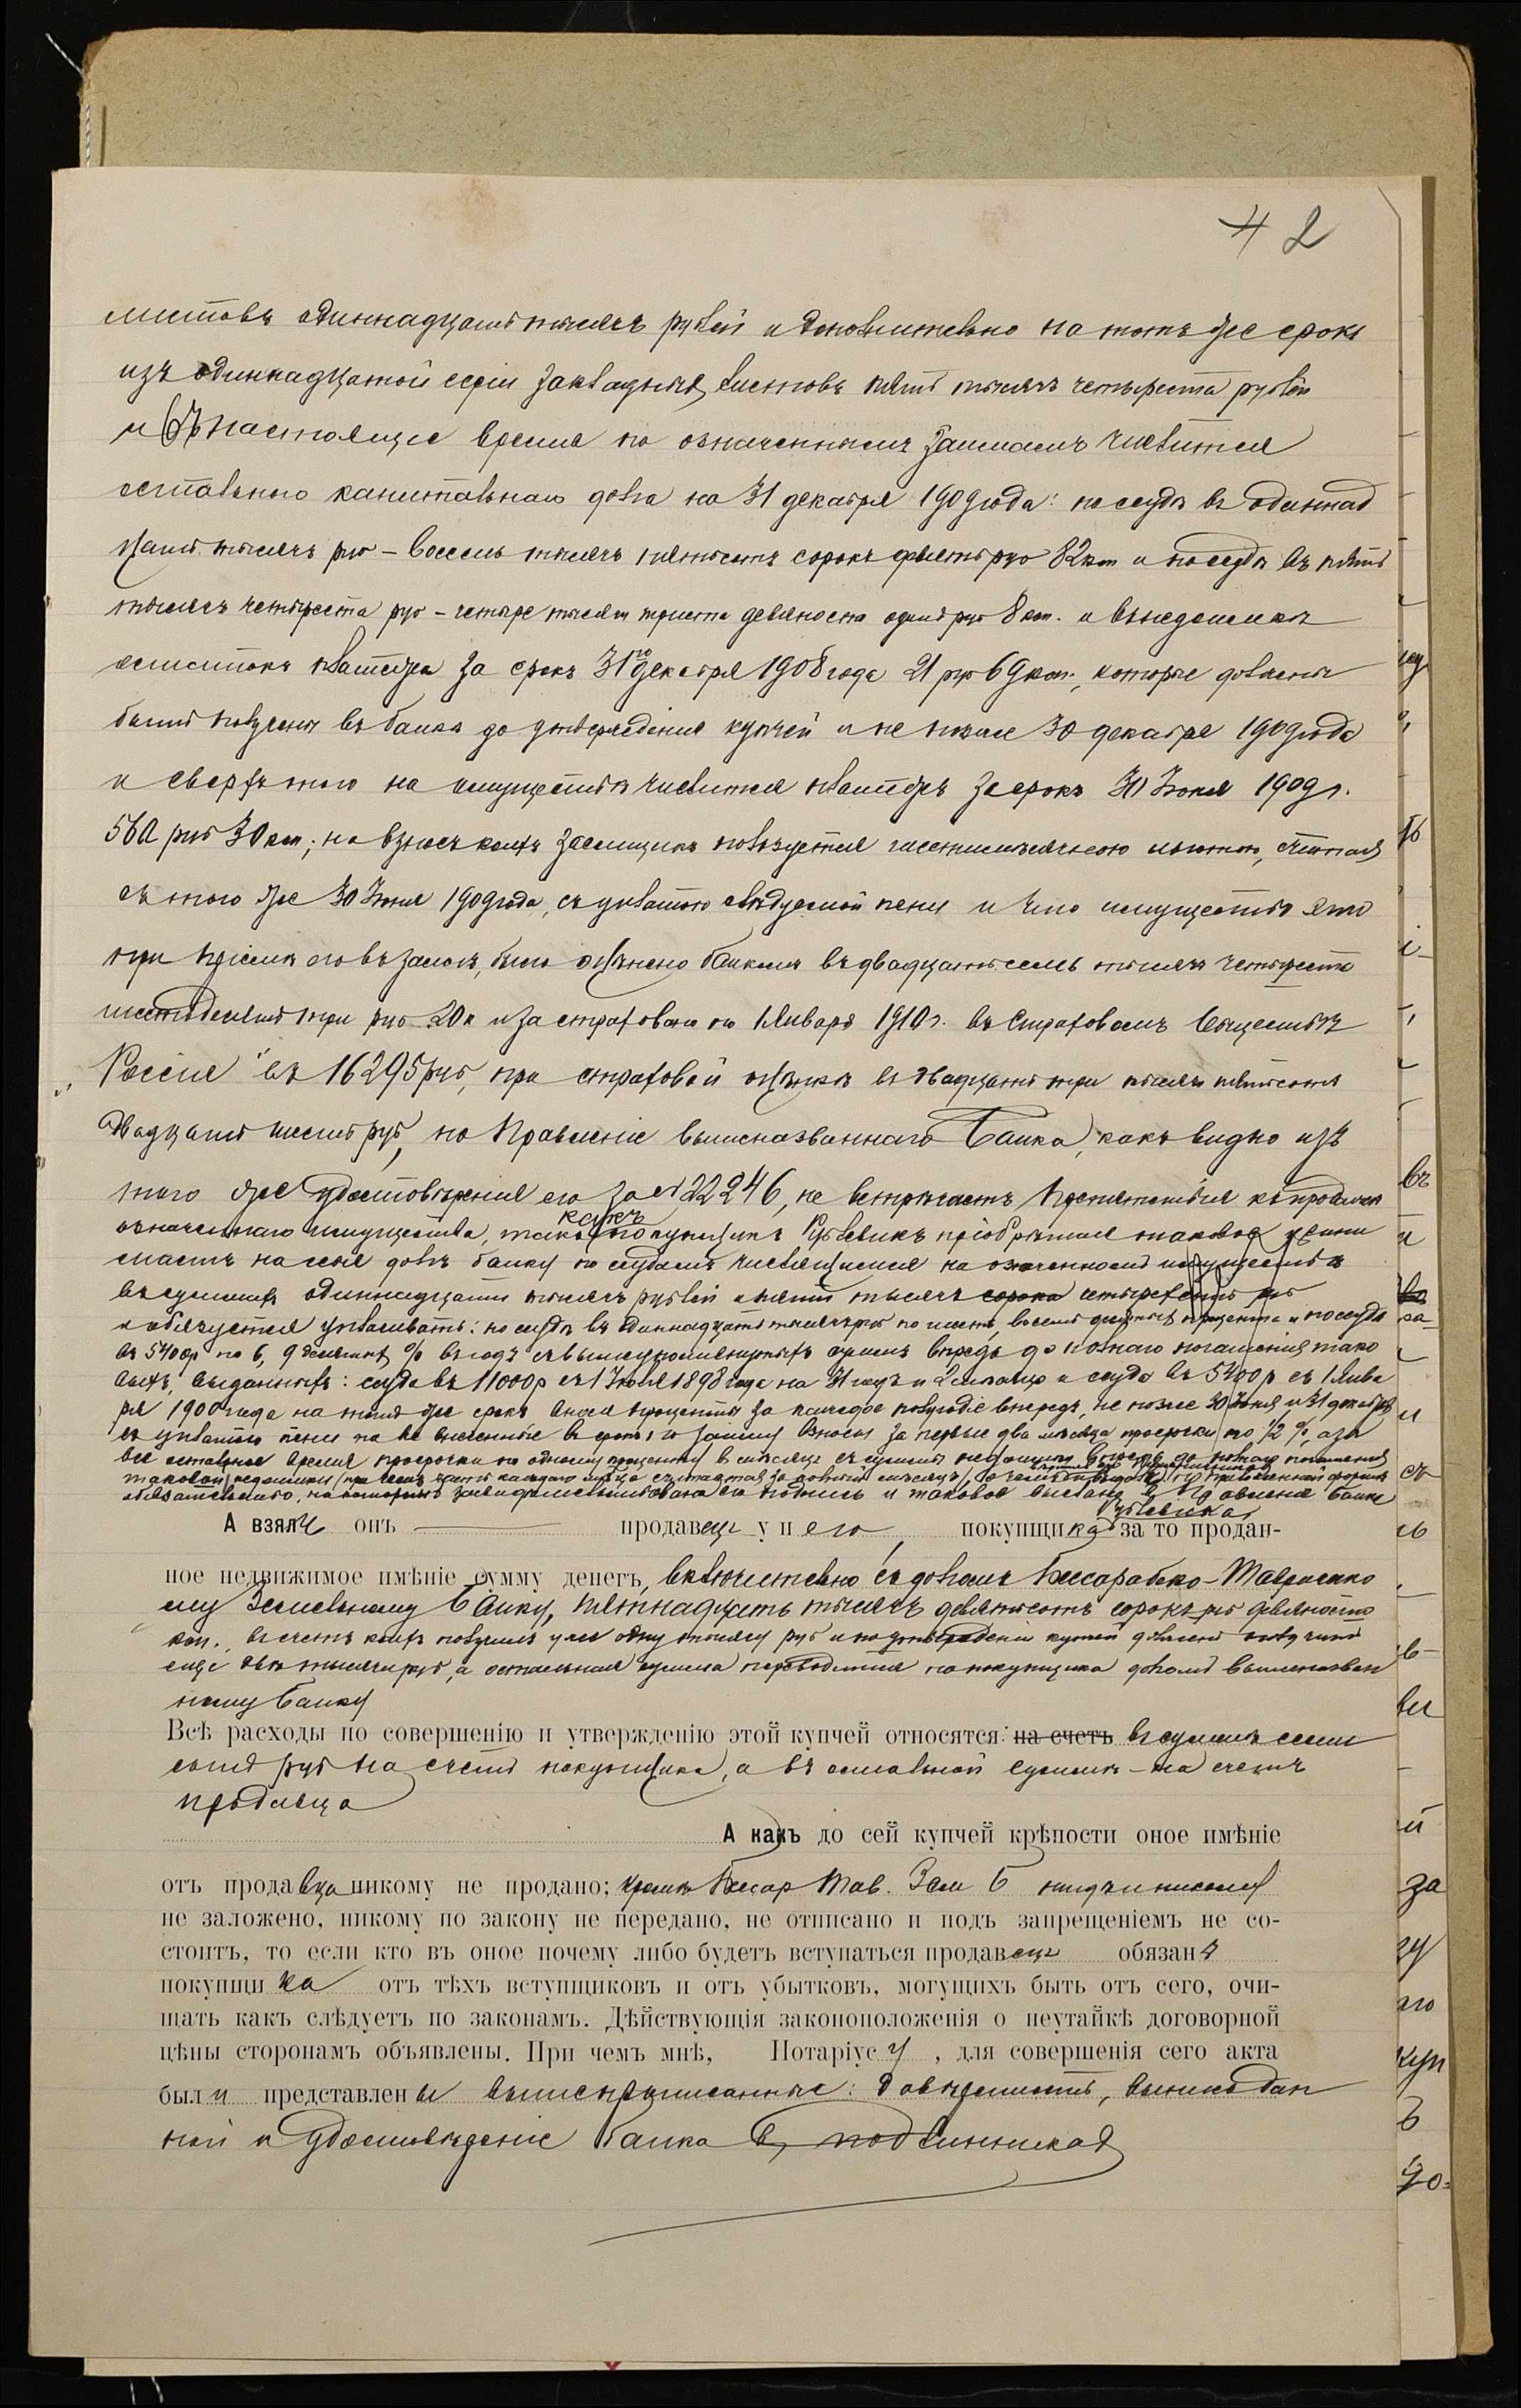 4 2
листовъ одиннадцать тысячъ рублей и дополнительно на тотъ же срокъ
изъ одиннадцатой серіи закладныхъ листовъ пять тысячъ четыреста рублей
и въ настоящее время по означеннымъ займамъ числится
остальнаго капитальнаго долга на 31 декабря 1909 года: по ссудѣ въ одиннад
цать тысячъ руб – восемь тысячъ пятьсотъ сорокъ девять руб 82 коп и по ссудѣ въ пять
тысячъ четыреста руб – четыре тысячи триста девяносто одинъ руб 8 коп. и въ недоимкѣ
остатокъ платежа за срокъ 31го декабря 1908 года 21 руб 69 коп., которые должны
быть получены въ банкѣ до утвержденія купчей и не позже 30 декабря 1909 года
и сверхъ того на имуществѣ числится платежъ за срокъ 30 Іюня 1909 г.
560 руб 30 коп; на взносъ коихъ заемщикъ пользуется шестимѣсячною льготою, считая
съ того же 30 Іюня 1909 года, съ уплатою слѣдуемой пени и что имущество это
при пріемѣ его въ залогъ, было оцѣнено банкомъ въ двадцать семь тысячъ четыреста
шестьдесятъ три руб 20 к и застраховано по 1 Января 1910 г. въ Страховомъ Обществѣ
„Россія" въ 16295 руб, при страховой оцѣнкѣ въ двадцать три тысячи пятьсотъ
двадцать шесть руб, но Правленіе вышеназваннаго Банка, какъ видно изъ
того же удостовѣренія его за № 22246, не встрѣчаетъ препятствія къ продажѣ
означеннаго имущества, такъ какъ покупщикъ пріобрѣтая таковое прини
маетъ на себя долгъ банку по ссудамъ числящимся на означенномъ имуществѣ
въ суммахъ одиннадцати тысячъ рублей и пяти тысячъ сорока четырехсотъ руб
и обязуется уплачивать: по ссудѣ въ одиннадцать тысячъ руб по шесть, восемь десятыхъ процента и по ссудѣ
въ 5400 р по 6, 9 десятыхъ % въ годъ съ вышеупомянутыхъ суммъ впредь до полнаго погашенія тако
выхъ, выданныхъ: ссуда въ 11000 р съ 1 Іюля 1898 года на 31 годъ и 2 мѣсяца и ссуда въ 5400 р съ 1 Янва
ря 1900 года на тотъ же срокъ внося проценты за каждое полугодіе впередъ, не позже 30 Іюня и 31 декабря
съ уплатою пени на не внесенные въ срокъ по займу взносы за первые два мѣсяца просрочки по 1/2 %, а за
все остальное время просрочки по одному проценту въ мѣсяцъ съ суммы недоимки впредь до полнаго погашенія
таковой недоимки, при чемъ часть каждаго мѣсяца считается за полный мѣсяцъ, въ чемъ и выдалъ по правленской формѣ
обязательство, на которомъ засвидѣтельствована его подпись и таковое выслано въ Правленіе банка
А взялъ онъ продавецъ у него, покупщика за то продан-
ное недвижимое имѣніе сумму денегъ, включительно съ долгомъ Бессарабско-Таврическо
му Земельному Банку, пятнадцать тысячъ девятьсотъ сорокъ руб девяносто
коп., въ счетъ коихъ получилъ уже одну тысячу руб и по утвержденіи купчей долженъ получить
еще двѣ тысячи руб, а остальная сумма переводится на покупщика долгомъ вышеназван
ному банку
Всѣ расходы по совершенію и утвержденію этой купчей относятся: на счетъ въ суммѣ семи
сотъ руб на счетъ покупщика, а въ остальной суммѣ – на счетъ
продавца
А какъ до сей купчей крѣпости оное имѣніе
отъ продавца никому не продано; кромѣ Бессар Тав. Зем Б нигдѣ и никому
не заложено, никому по закону не передано, не отписано и подъ запрещеніемъ не со-
стоитъ, то если кто въ оное почему либо будетъ вступаться продавецъ обязанъ
покупщика отъ тѣхъ вступщиковъ и отъ убытковъ, могущихъ быть отъ сего, очи-
щать какъ слѣдуетъ по законамъ. Дѣйствующія законоположенія о неутайкѣ договорной
цѣны сторонамъ объявлены. При чемъ мнѣ, Нотаріусу, для совершенія сего акта
были представлены вышепрописанные: довѣренность, выпись дан
ной и удостовѣреніе Банка